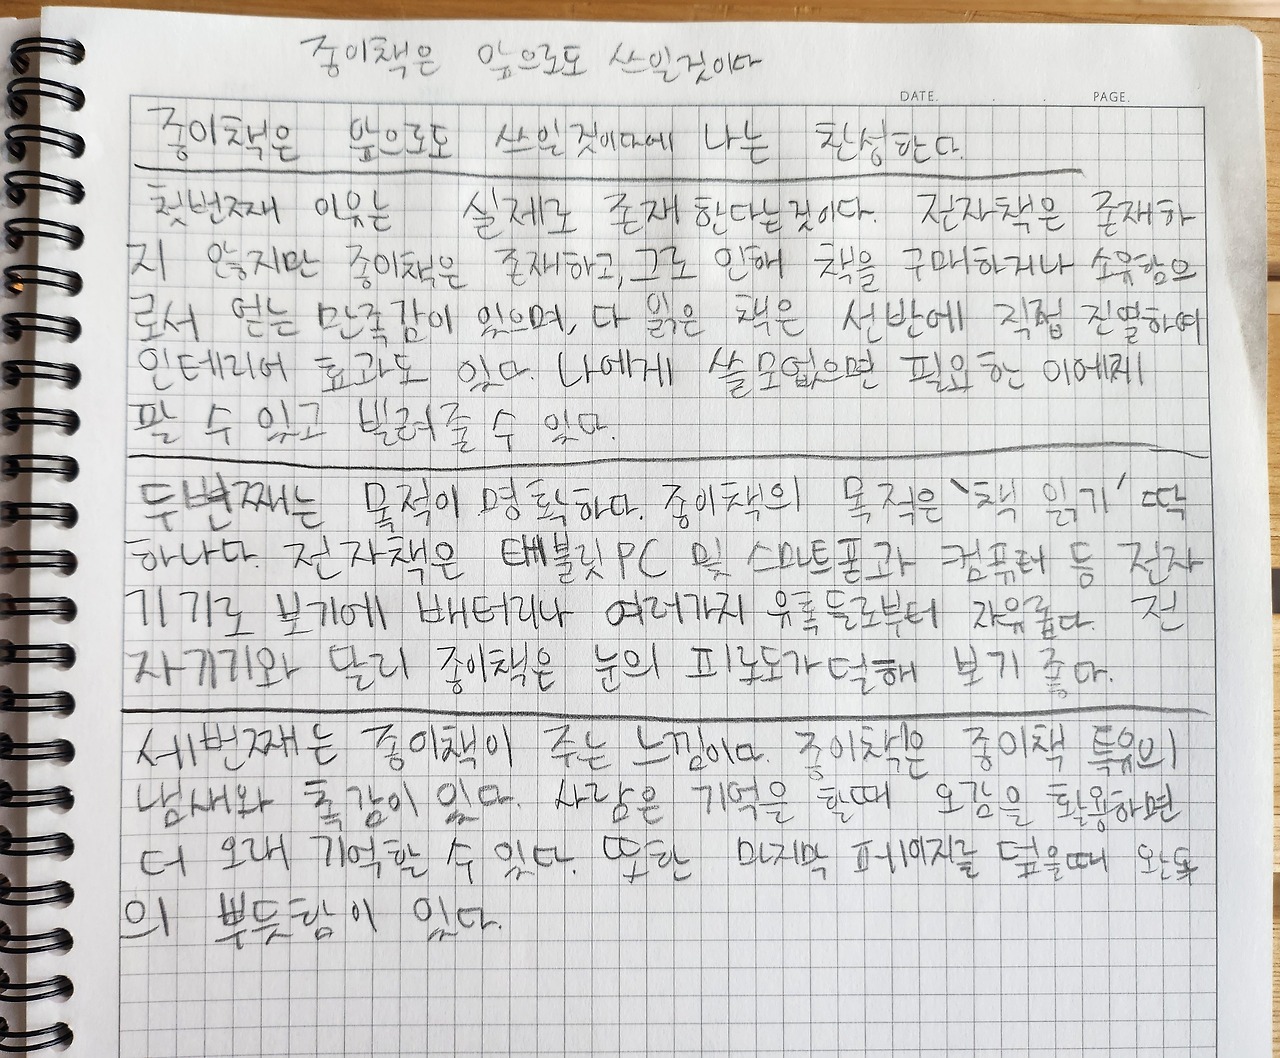 종이책은 앞으로도 쓰일것이다
DATE. . . PAGE.
종이책은 앞으로도 쓰일것이다에 나는 찬성한다.
첫번째 이유는 실제로 존재한다는것이다. 전자책은 존재하
지 않지만 종이책은 존재하고, 그로 인해 책을 구매하거나 소유함으
로서 얻는 만족감이 있으며, 다 읽은 책은 선반에 직접 진열하여
인테리어 효과도 있다. 나에게 쓸모없으면 필요한 이에게
팔 수 있고 빌려줄 수 있다.
두번째는 목적이 명확하다. 종이책의 목적은 '책 읽기' 딱
하나다. 전자책은 태블릿PC 및 스마트폰과 컴퓨터 등 전자
기기로 보기에 배터리나 여러가지 유혹들로부터 자유롭다. 전
자기기와 달리 종이책은 눈의 피로도가 덜해 보기 좋다.
세번째는 종이책이 주는 느낌이다. 종이책은 종이책 특유의
냄새와 촉감이 있다. 사람은 기억을 할때 오감을 활용하면
더 오래 기억할 수 있다. 또한 마지막 페이지를 덮을때 완독
의 뿌듯함이 있다.